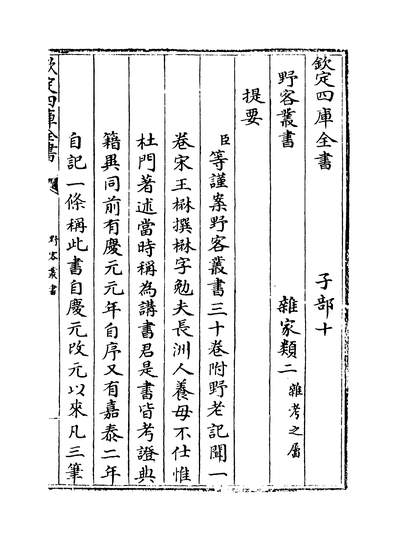 欽定四庫全書　子部十
野客叢書　雜家類二雜考之屬
提要
臣等謹案野客叢書三十卷附野老記聞一
卷宋王楙撰楙字勉夫長洲人養母不仕惟
杜門著述當時稱為講書君是書皆考證典
籍異同前有慶元元年自序又有嘉泰二年
自記一條稱此書自慶元改元以來凡三筆
欽定四庫全書
野客叢書